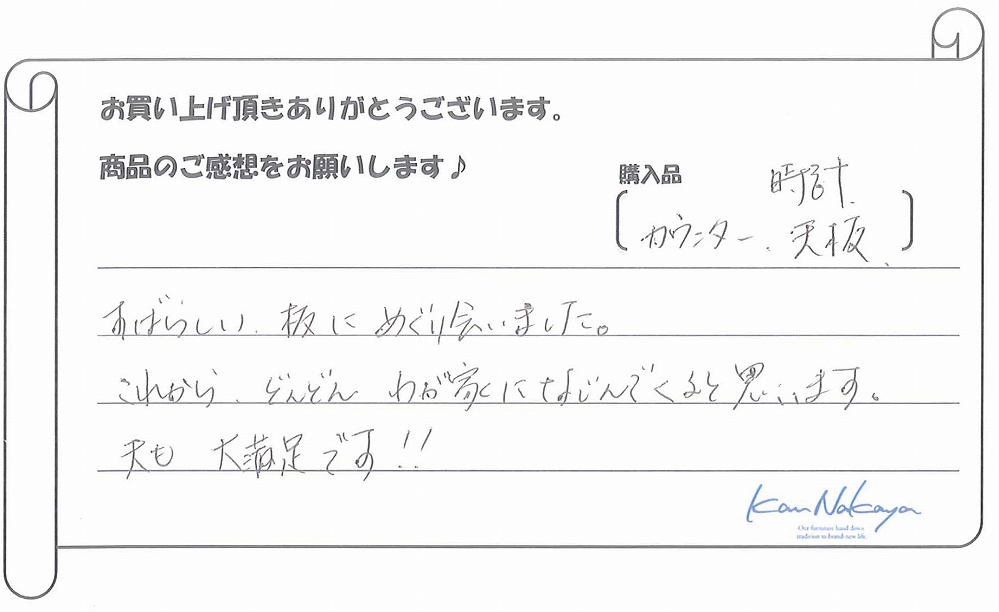 お買い上げ頂きありがとうございます。
商品のご感想をお願いします♪
購入品
時計
カウンター、天板
すばらしい、板に めぐり会いました。
これから、どんどん わが家になじんでくると思います。
夫も 大満足です!!
Kan Nakaya
Our furniture hand down
tradition to brand-new life.